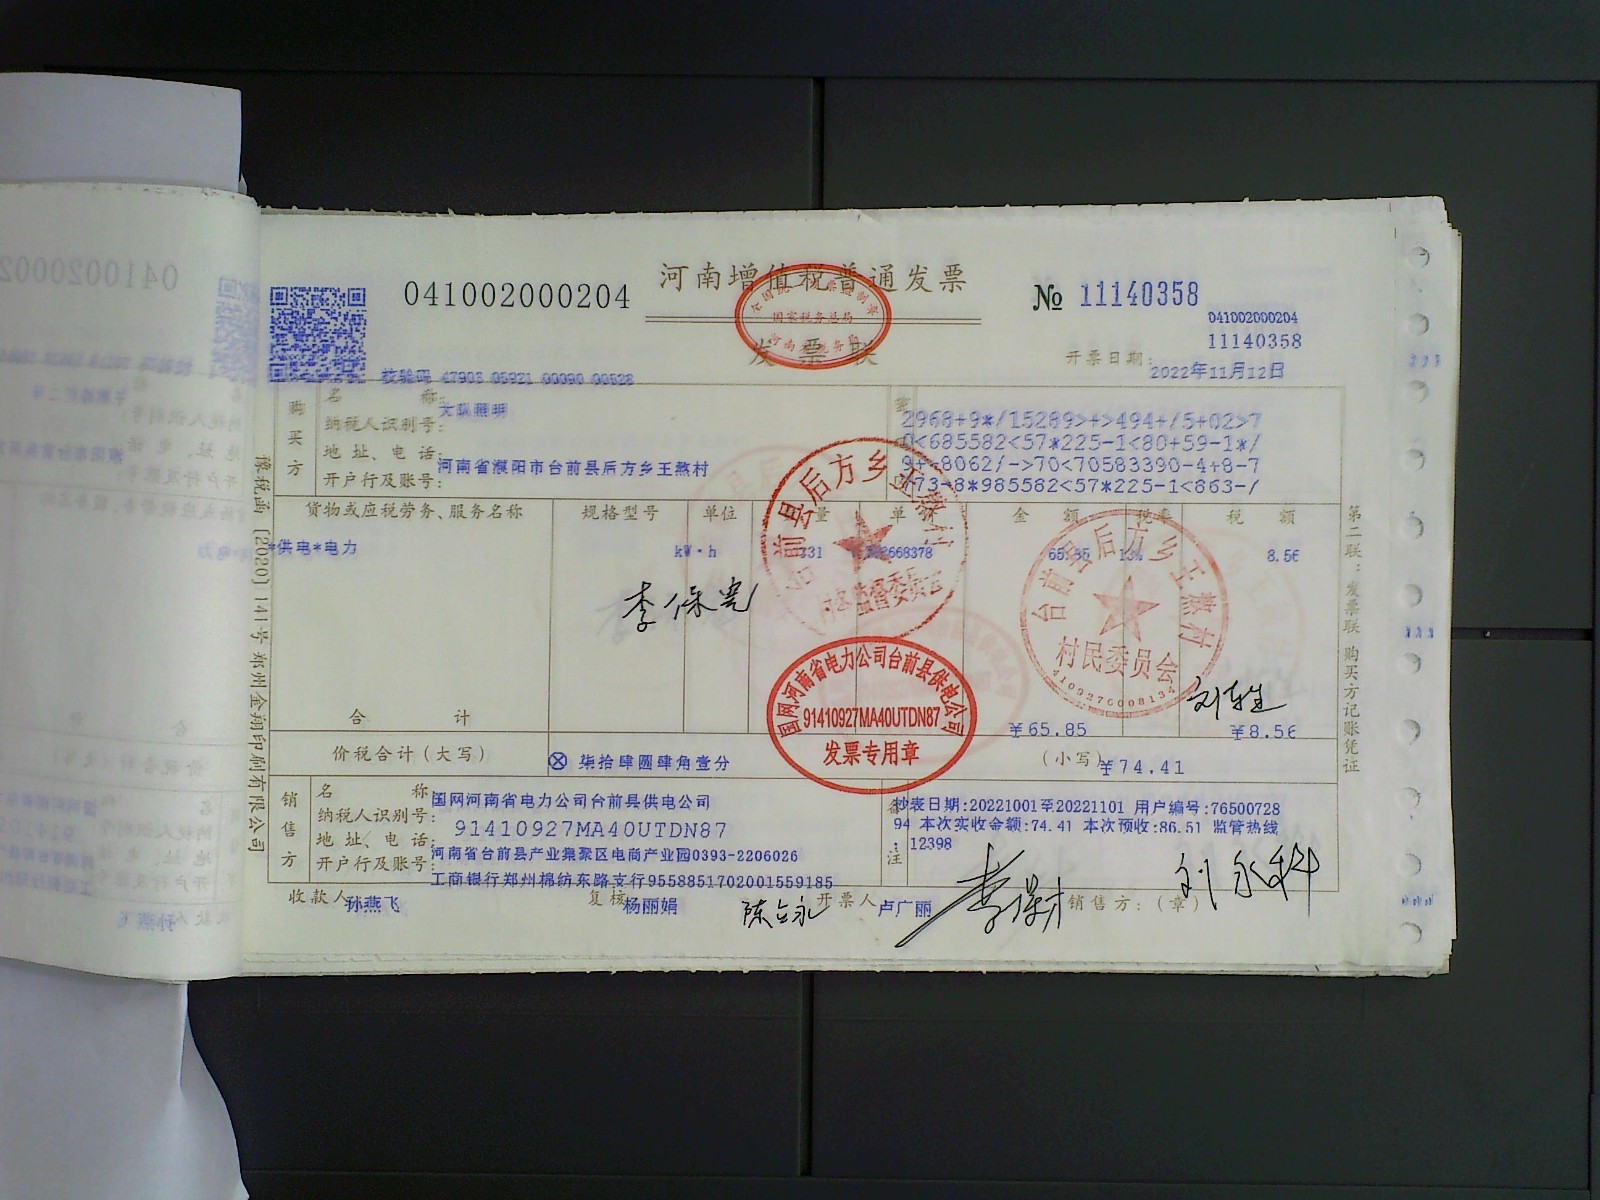 河南增值税普通发票
发票联
041002000204
№ 11140358
041002000204
11140358
校验码 47903 05921 00090 00528
开票日期: 2022年11月12日
购买方
名 称: 大队照明
纳税人识别号:
地址、电话: 河南省濮阳市台前县后方乡王熬村
开户行及账号:
2968+9*/15289>+>494+/5+02>7
0<685582<57*225-1<80+59-1*/
9+-8062/->70<70583390-4+8-7
+73-8*985582<57*225-1<863-/
货物或应税劳务、服务名称 规格型号 单位 数量 单价 金额 税率 税额
*供电*电力 kW·h 65.85 13% 8.56
李保宪
合 计 ¥65.85 ¥8.56
价税合计(大写) ⊗ 柒拾肆圆肆角壹分 (小写) ¥74.41
销售方
名 称: 国网河南省电力公司台前县供电公司
纳税人识别号: 91410927MA40UTDN87
地址、电话: 河南省台前县产业集聚区电商产业园0393-2206026
开户行及账号: 工商银行郑州棉纺东路支行9558851702001559185
备注
抄表日期:20221001至20221101 用户编号:76500728
94 本次实收金额:74.41 本次预收:86.51 监管热线
:12398
收款人: 孙燕飞 复核: 杨丽娟 开票人: 卢广丽 销售方:(章)
刘永科
第二联:发票联 购买方记账凭证
豫税函〔2020〕141号郑州金翔印刷有限公司
国家税务总局
台前县后方乡王熬村
村务监督委员会
台前县后方乡王熬村
村民委员会
4109270008134
国网河南省电力公司台前县供电公司
91410927MA40UTDN87
发票专用章